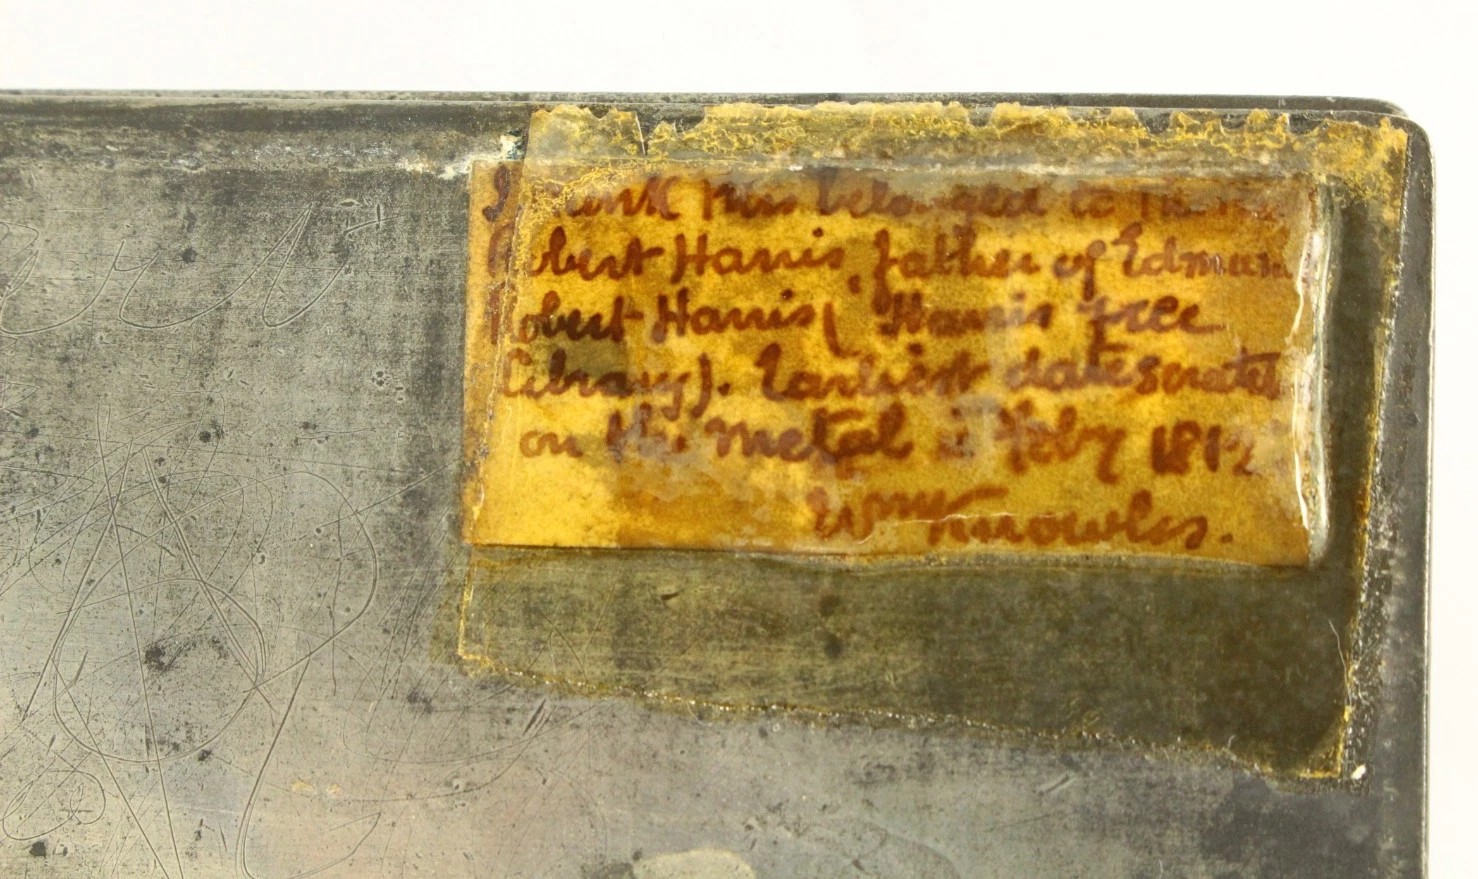 I think this belonged to
Robert Harris, father of Edmund
Robert Harris ( "Harris Free
Library). Earliest date scratched
on the metal is Feby 1812
Wm Knowles.